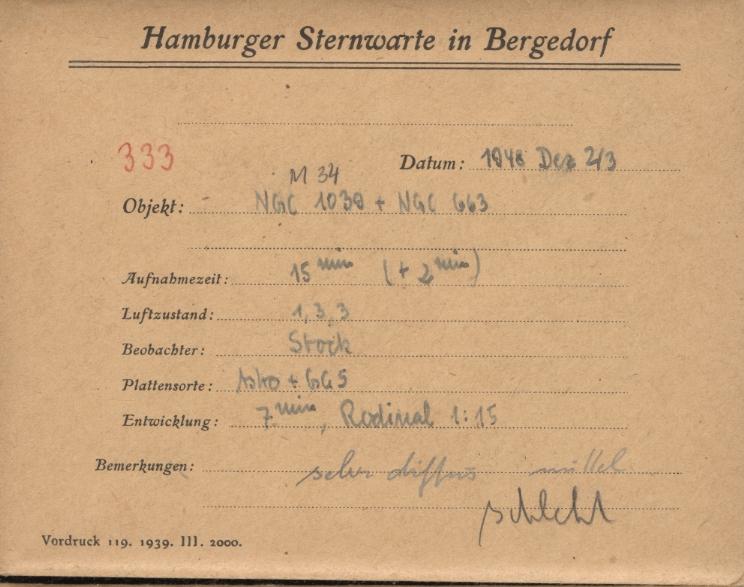 Hamburger Sternwarte in Bergedorf
333
Datum: 1948 Dez 2/3
M 34
Objekt: NGC 1039 + NGC 663
Aufnahmezeit: 15 min (+ 2 min)
Luftzustand: 1, 3, 3
Beobachter: Stock
Plattensorte: + GG5
Entwicklung: 7 min, Rodinal 1:15
Bemerkungen: sehr diffus mittel
schlecht
Vordruck 119. 1939. III. 2000.